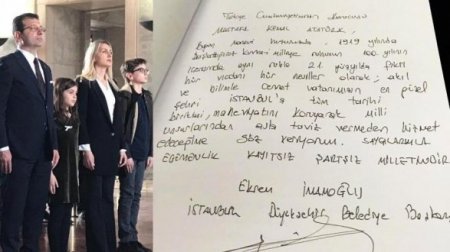 Türkiye Cumhuriyeti'nin Kurucusu
MUSTAFA KEMAL ATATÜRK,
manevi huzurunuzda, 1919 yılında
kuvvai milliye ruhunun 100. yılının
aynı ruhla 21. yüzyılda fikri
hür vicdanı hür nesiller olarak; akıl
ve bilimle cennet vatanımızın en güzel
şehri İSTANBUL'a tüm tarihi
birikimi, maneviyatını koruyarak milli
asla taviz vermeden hizmet
edeceğime söz veriyorum. SAYGILARIMLA
EGEMENLİK KAYITSIZ ŞARTSIZ MİLLETİNDİR
Ekrem İMAMOĞLU
İSTANBUL Büyükşehir Belediye Başkanı